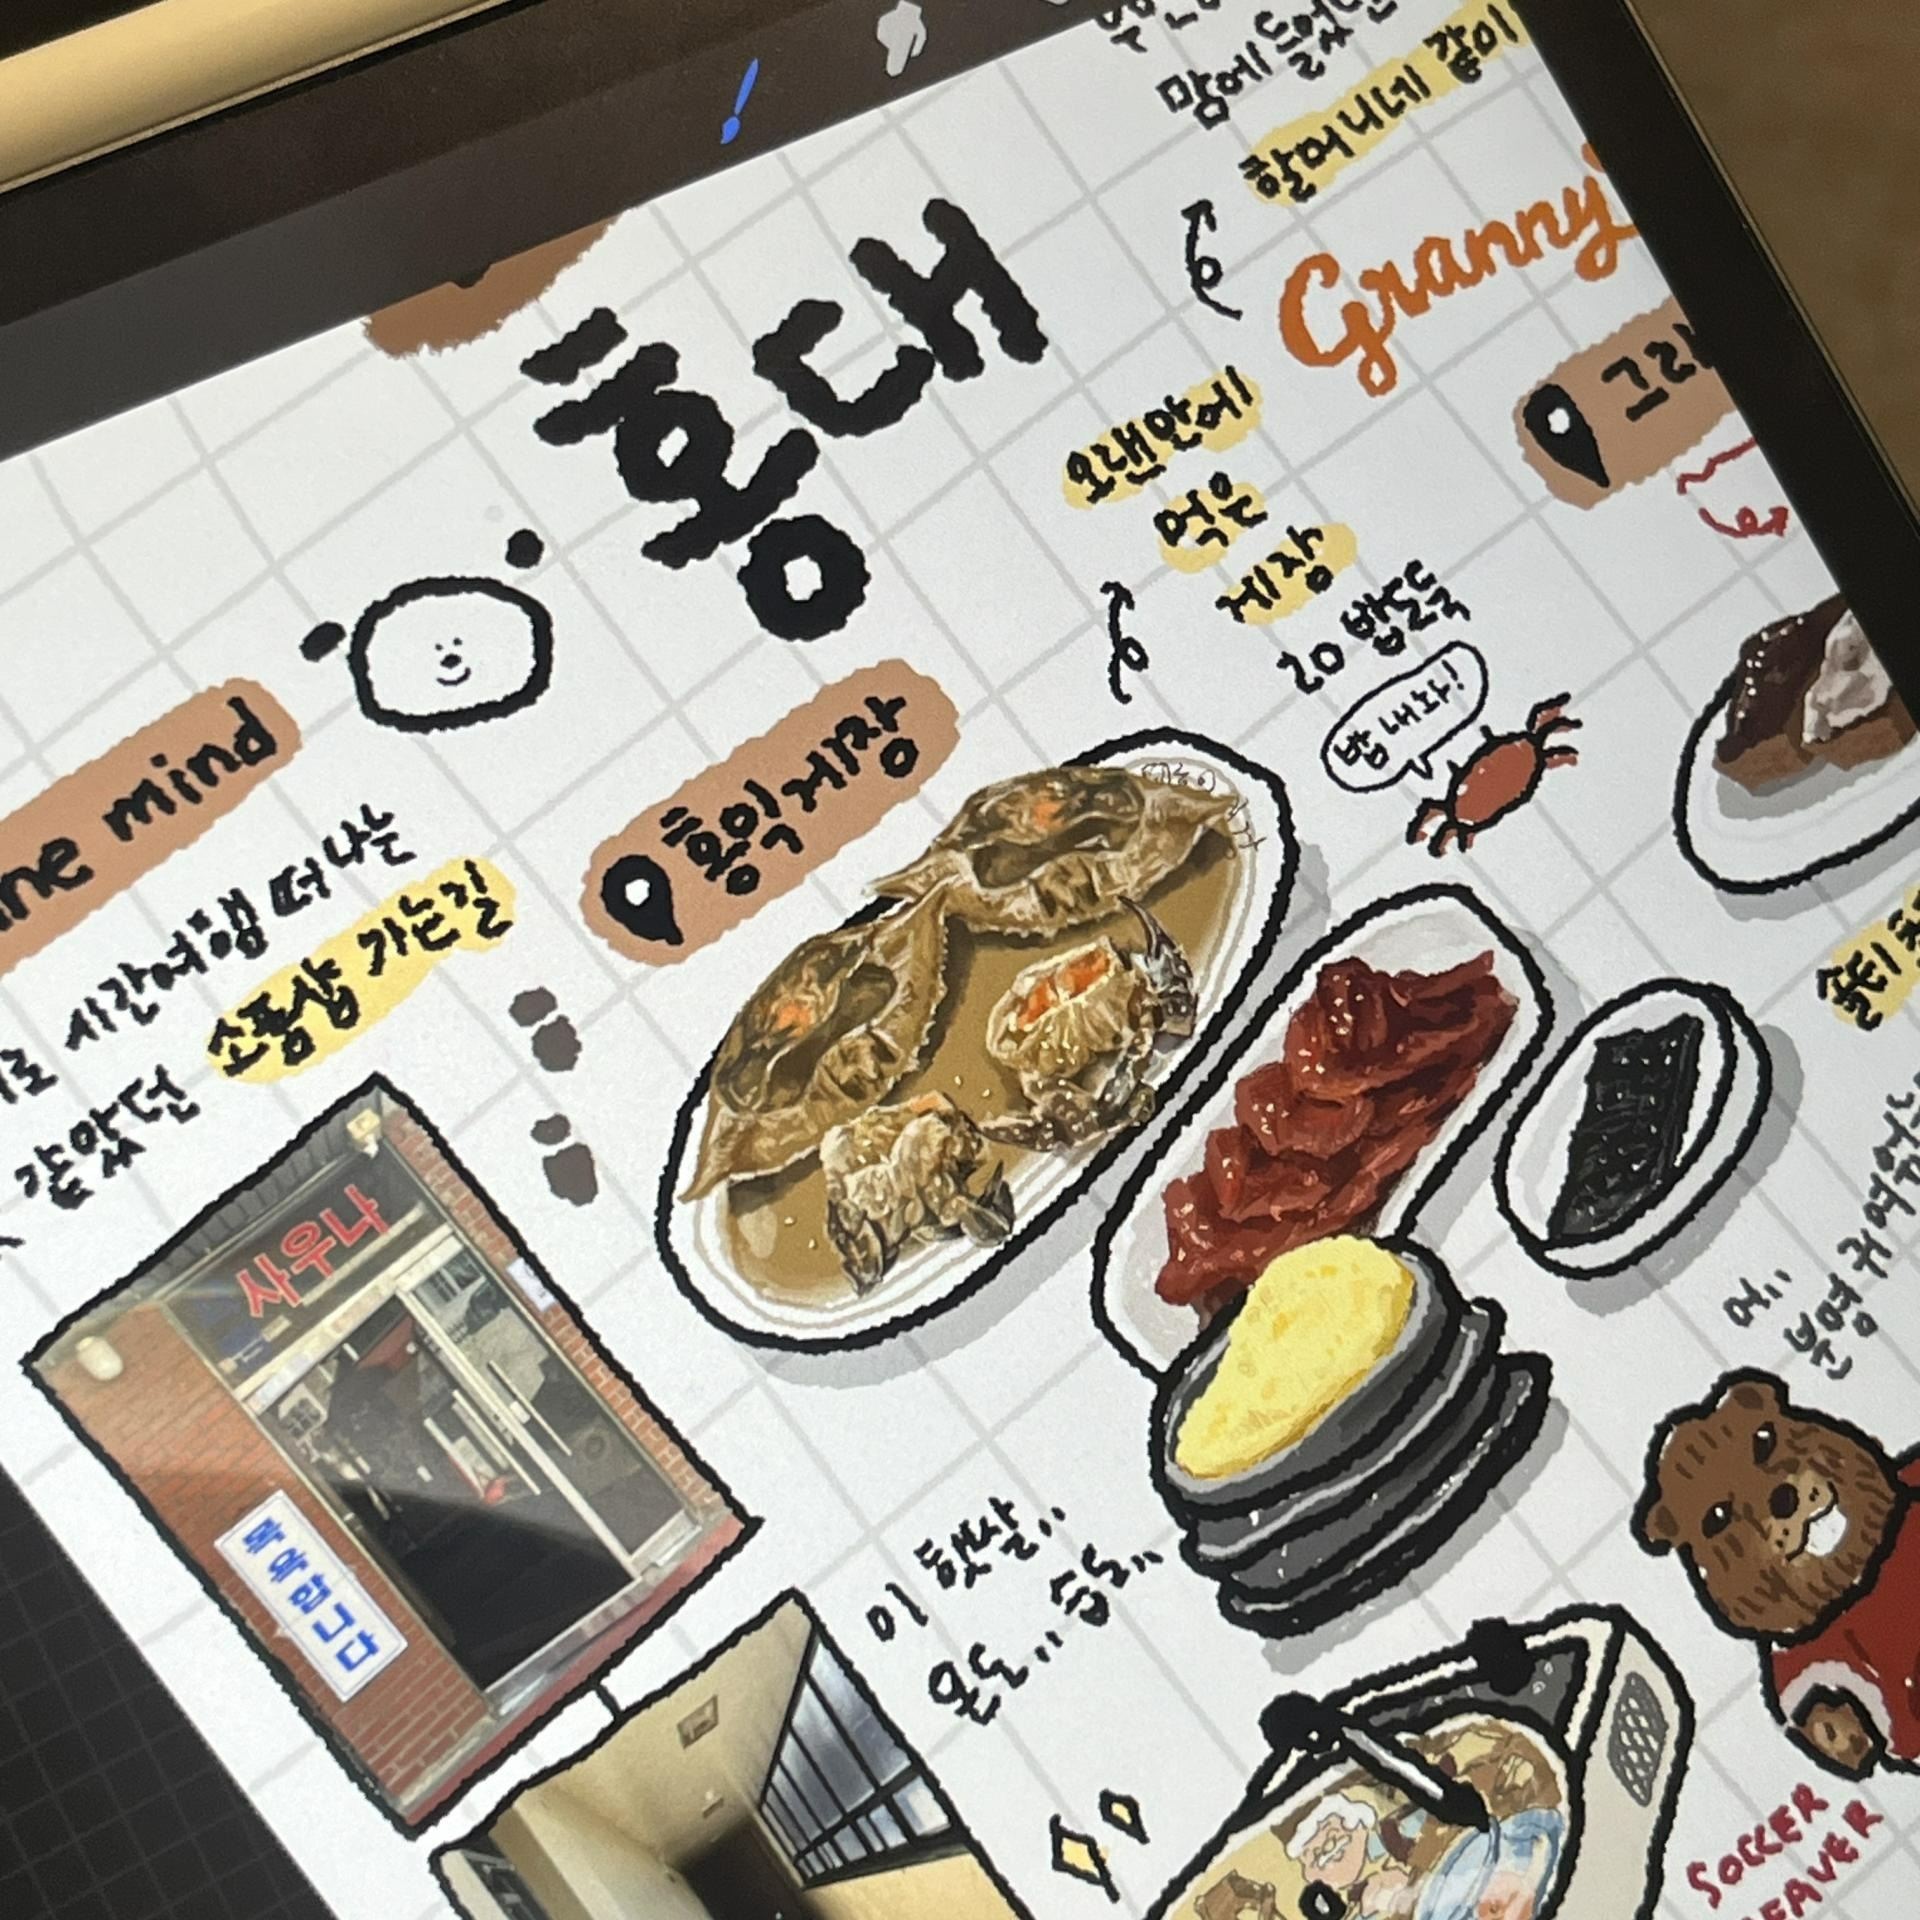 맘에 들었던
할머니네 같이
Granny'
홍대
오랜만에
먹은
게장
20 밥도둑
밥 내놔!
mind
홍익게장
시간여행 떠나는
소품샵 가는길
같았던
사우나
목욕합니다
이 햇살..
온도.. 습도..
분명 귀여
SOCCER